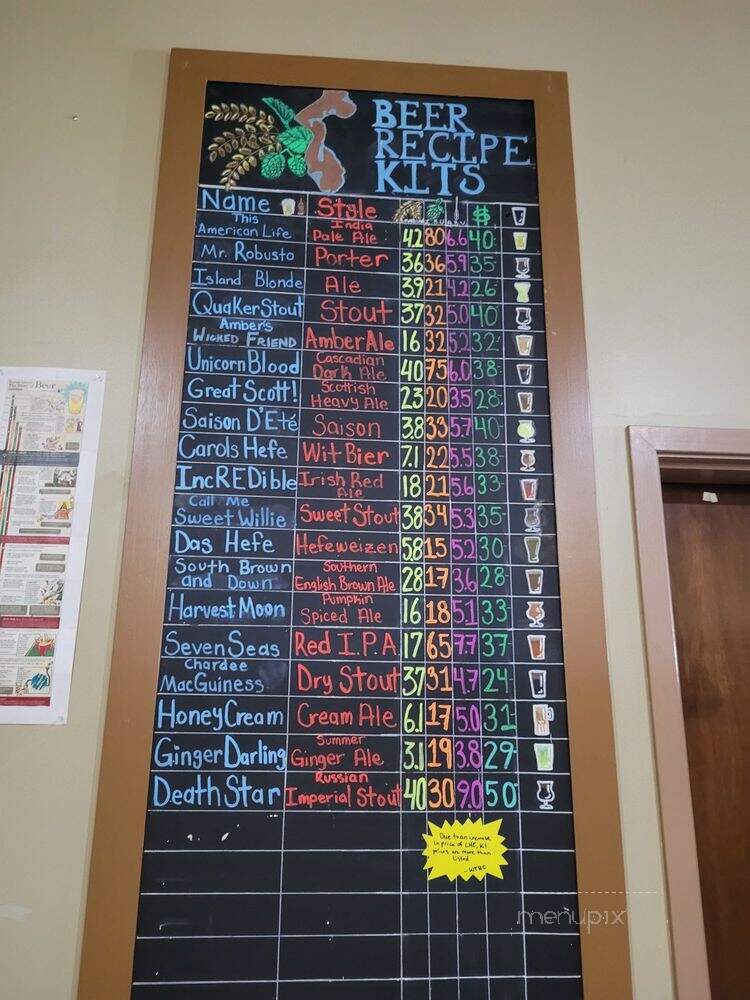 BEER
RECIPE
KITS
Name Style $
This American Life India Pale Ale 4.2 80 6.6 40
Mr. Robusto Porter 36 36 5.9 35
Island Blonde Ale 3.9 21 4.2 26
Quaker Stout Stout 37 32 5.0 40
Amber's Wicked Friend Amber Ale 16 32 5.2 32
Unicorn Blood Cascadian Dark Ale 40 75 6.0 38
Great Scott! Scottish Heavy Ale 23 20 3.5 28
Saison D'Eté Saison 3.8 33 5.7 40
Carols Hefe Wit Bier 7.1 22 5.5 38
IncREDible Irish Red Ale 18 21 5.6 33
Call Me Sweet Willie Sweet Stout 38 34 5.3 35
Das Hefe Hefeweizen 5.8 15 5.2 30
South Brown and Down Southern English Brown Ale 28 17 3.6 28
Harvest Moon Pumpkin Spiced Ale 16 18 5.1 33
Seven Seas Red I.P.A. 17 65 7.7 37
Chardee MacGuiness Dry Stout 37 31 4.7 24
Honey Cream Cream Ale 6.1 17 5.0 31
Ginger Darling Summer Ginger Ale 3.1 19 3.8 29
Death Star Russian Imperial Stout 40 30 9.0 50
Due to an increase
in price of LME, Kit
prices are more than
listed
-WTBC
menupix